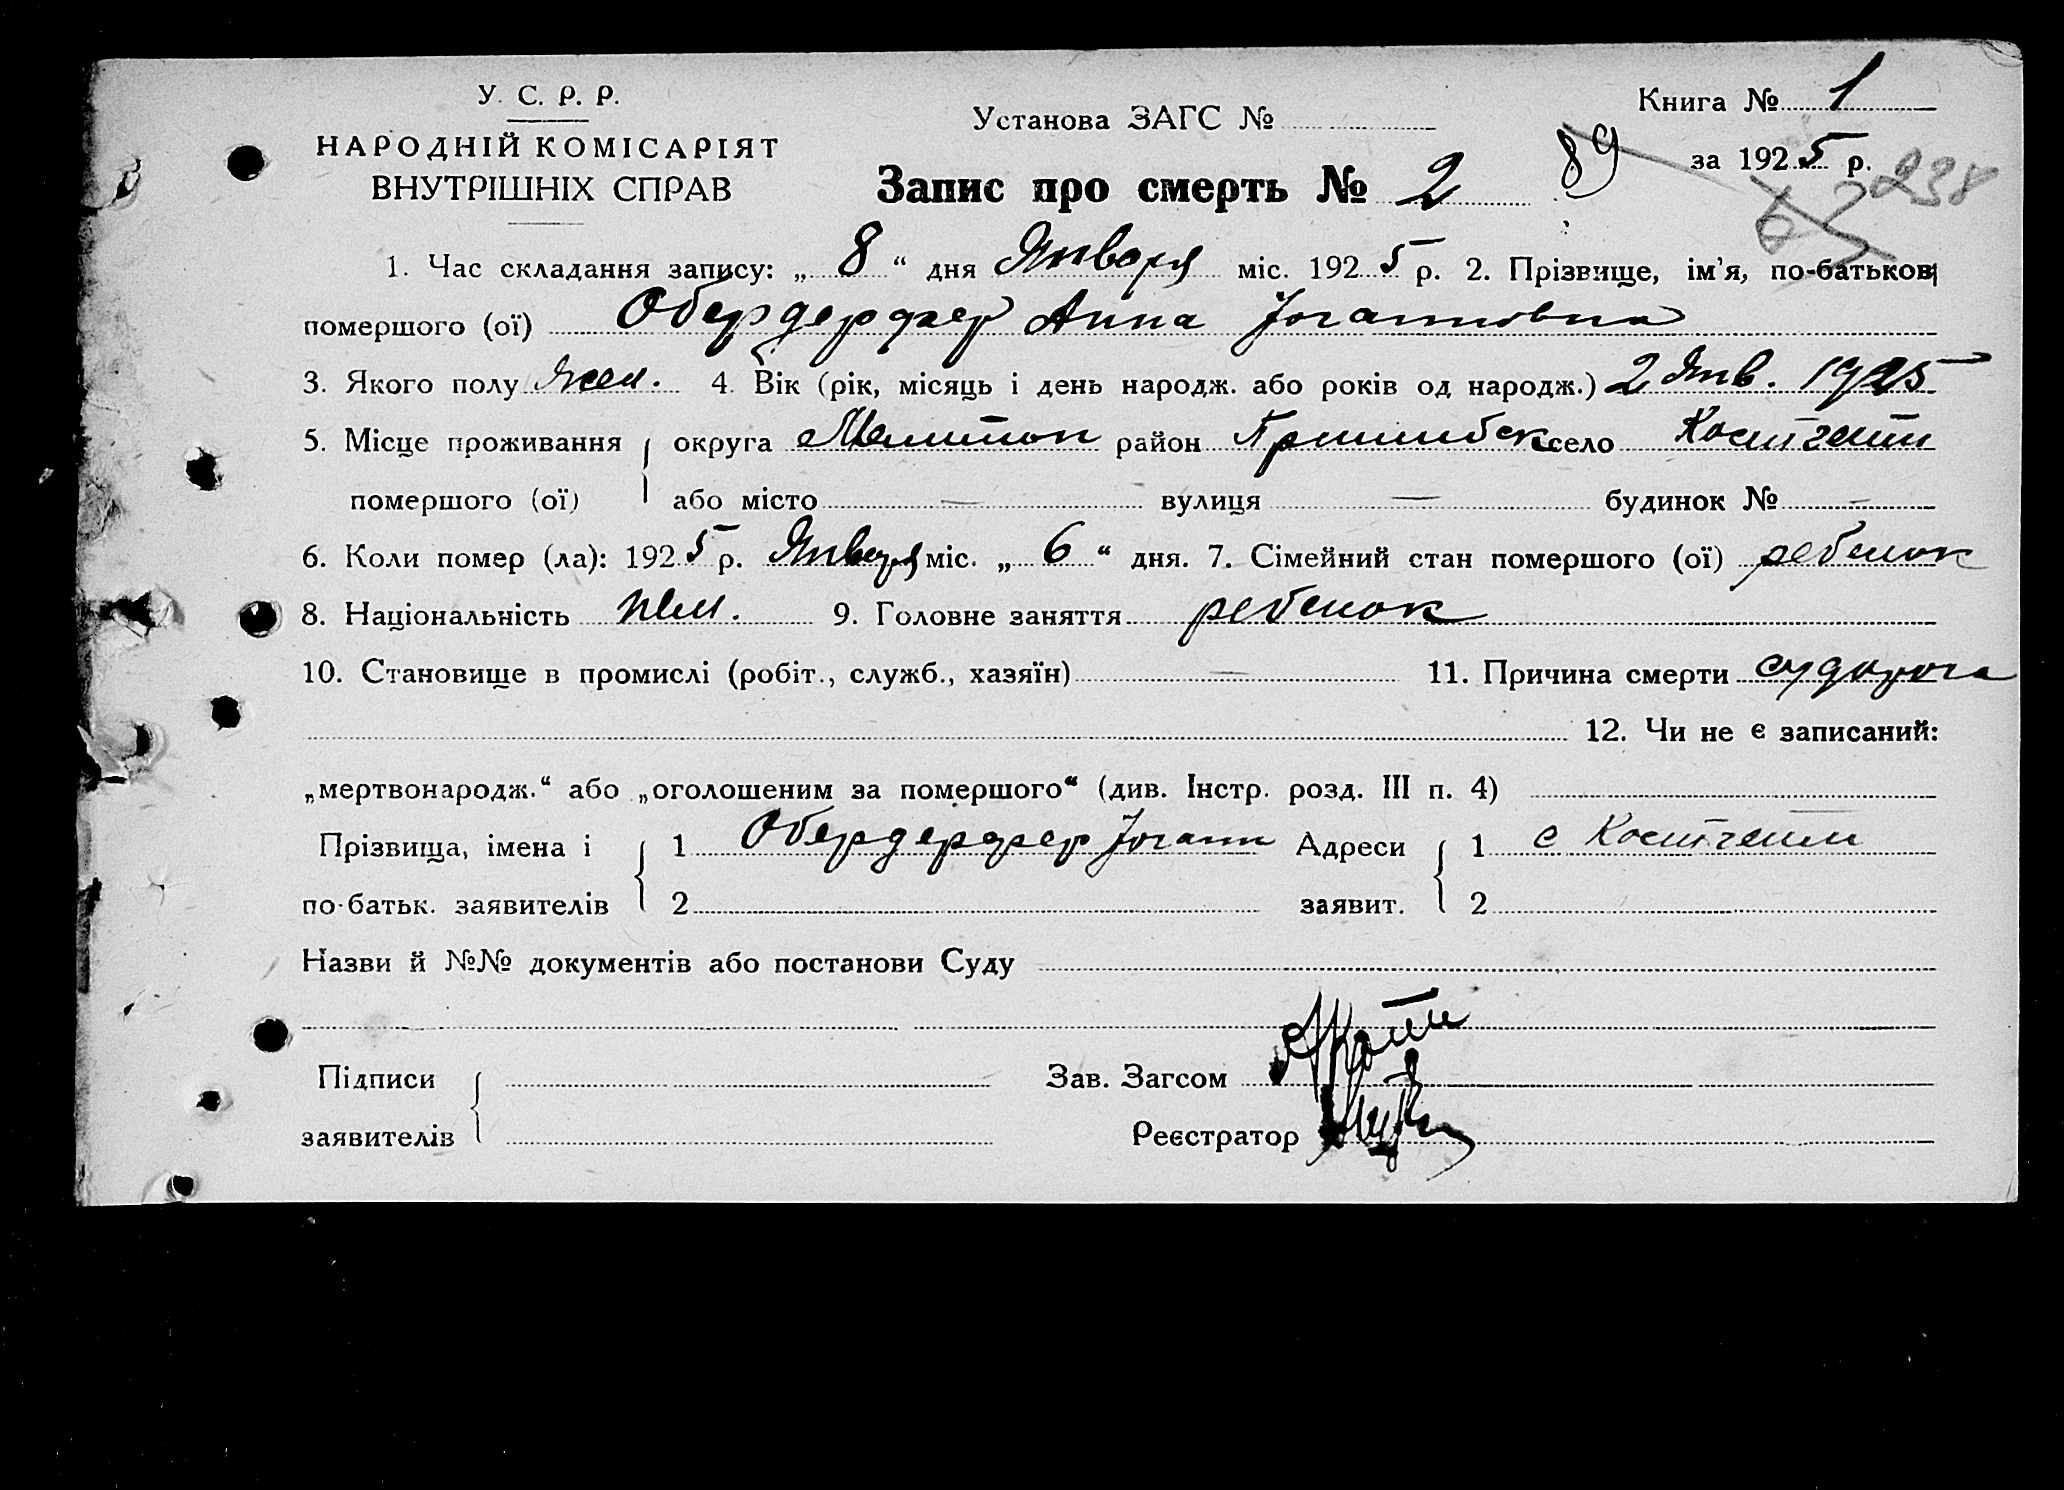 У. С. Р. Р.
НАРОДНІЙ КОМІСАРІЯТ
ВНУТРІШНІХ СПРАВ
Установа ЗАГС №
Книга № 1
за 1925 р.
238
Запис про смерть № 2
89
1. Час складання запису: „8“ дня Января міс. 1925 р. 2. Прізвище, ім'я, по-батькові
помершого (ої) Обердерфер Анна Иоганновна
3. Якого полу жен. 4. Вік (рік, місяць і день народж. або років од народж.) 2 Янв. 1925
5. Місце проживання округа Мелитоп район Пришибск село Костгейм
помершого (ої) або місто — вулиця — будинок № —
6. Коли помер (ла): 1925 р. Января міс. „6“ дня. 7. Сімейний стан помершого (ої) ребенок
8. Національність нем. 9. Головне заняття ребенок
10. Становище в промислі (робіт., служб., хазяїн) — 11. Причина смерти судорога
12. Чи не є записаний:
„мертвонародж.“ або „оголошеним за помершого“ (див. Інстр. розд. III п. 4)
Прізвища, імена і 1 Обердерфер Иоганн Адреси 1 с Костгейм
по-батьк. заявителів 2 заявит. 2
Назви й №№ документів або постанови Суду
Підписи Зав. Загсом
заявителів Реєстратор